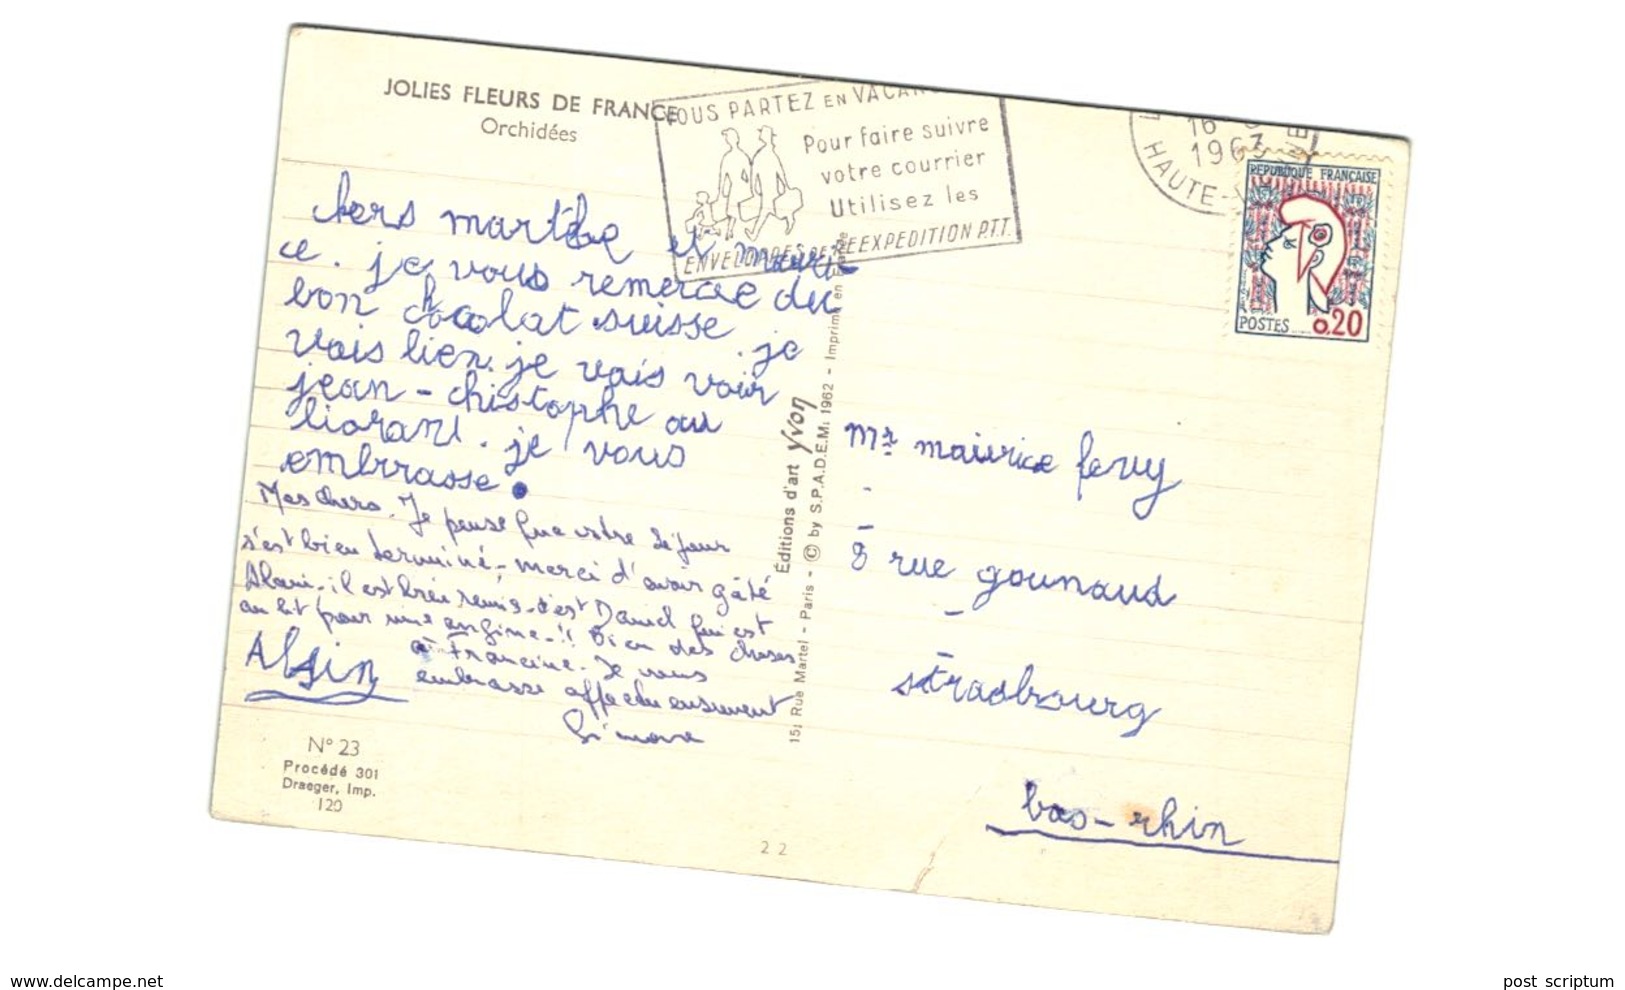 JOLIES FLEURS DE FRANCE
Orchidées
VOUS PARTEZ EN VACAN
Pour faire suivre
votre courrier
Utilisez les
ENVELOPPES DE REEXPEDITION P.T.T.
16
1963
HAUTE-
REPUBLIQUE FRANCAISE
POSTES 0,20
chers marthe et mauri-
ce. je vous remercie du
bon chocolat suisse. je
vais bien. je vais voir
jean-chistophe au
lioran. je vous
embrasse.
Mes chers. Je pense que votre séjour
s'est bien terminé, merci d'avoir gâté
Alain. il est bien remis. c'est Daniel qui est
au lit pour une angine-!! Bien des choses
à Francine. Je vous
embrasse affectueusement
Simone
Alain
N° 23
Procédé 301
Draeger, Imp.
120
2 2
Éditions d'art Yvon
15, Rue Martel - Paris - © by S.P.A.D.E.M. 1962 - Imprimé en France
Mr maurice fevy
8 rue gounaud
strasbourg
bas-rhin
post scriptum
www.delcampe.net